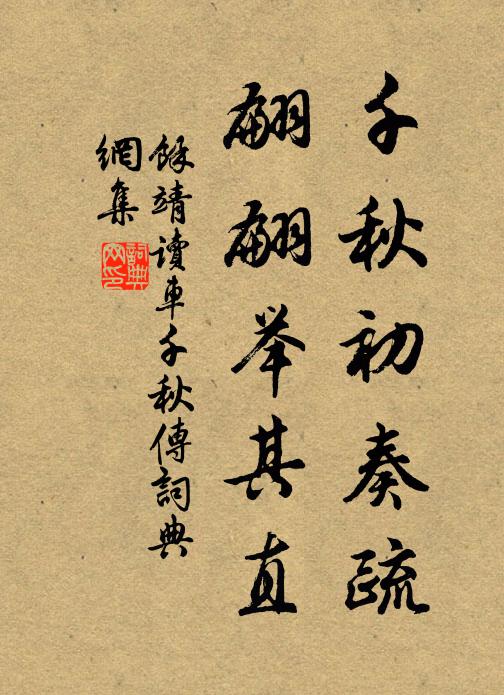 千秋初奏疏
翩翩举其直
餘靖讀車千秋傳詞典
網集
詞典
网印